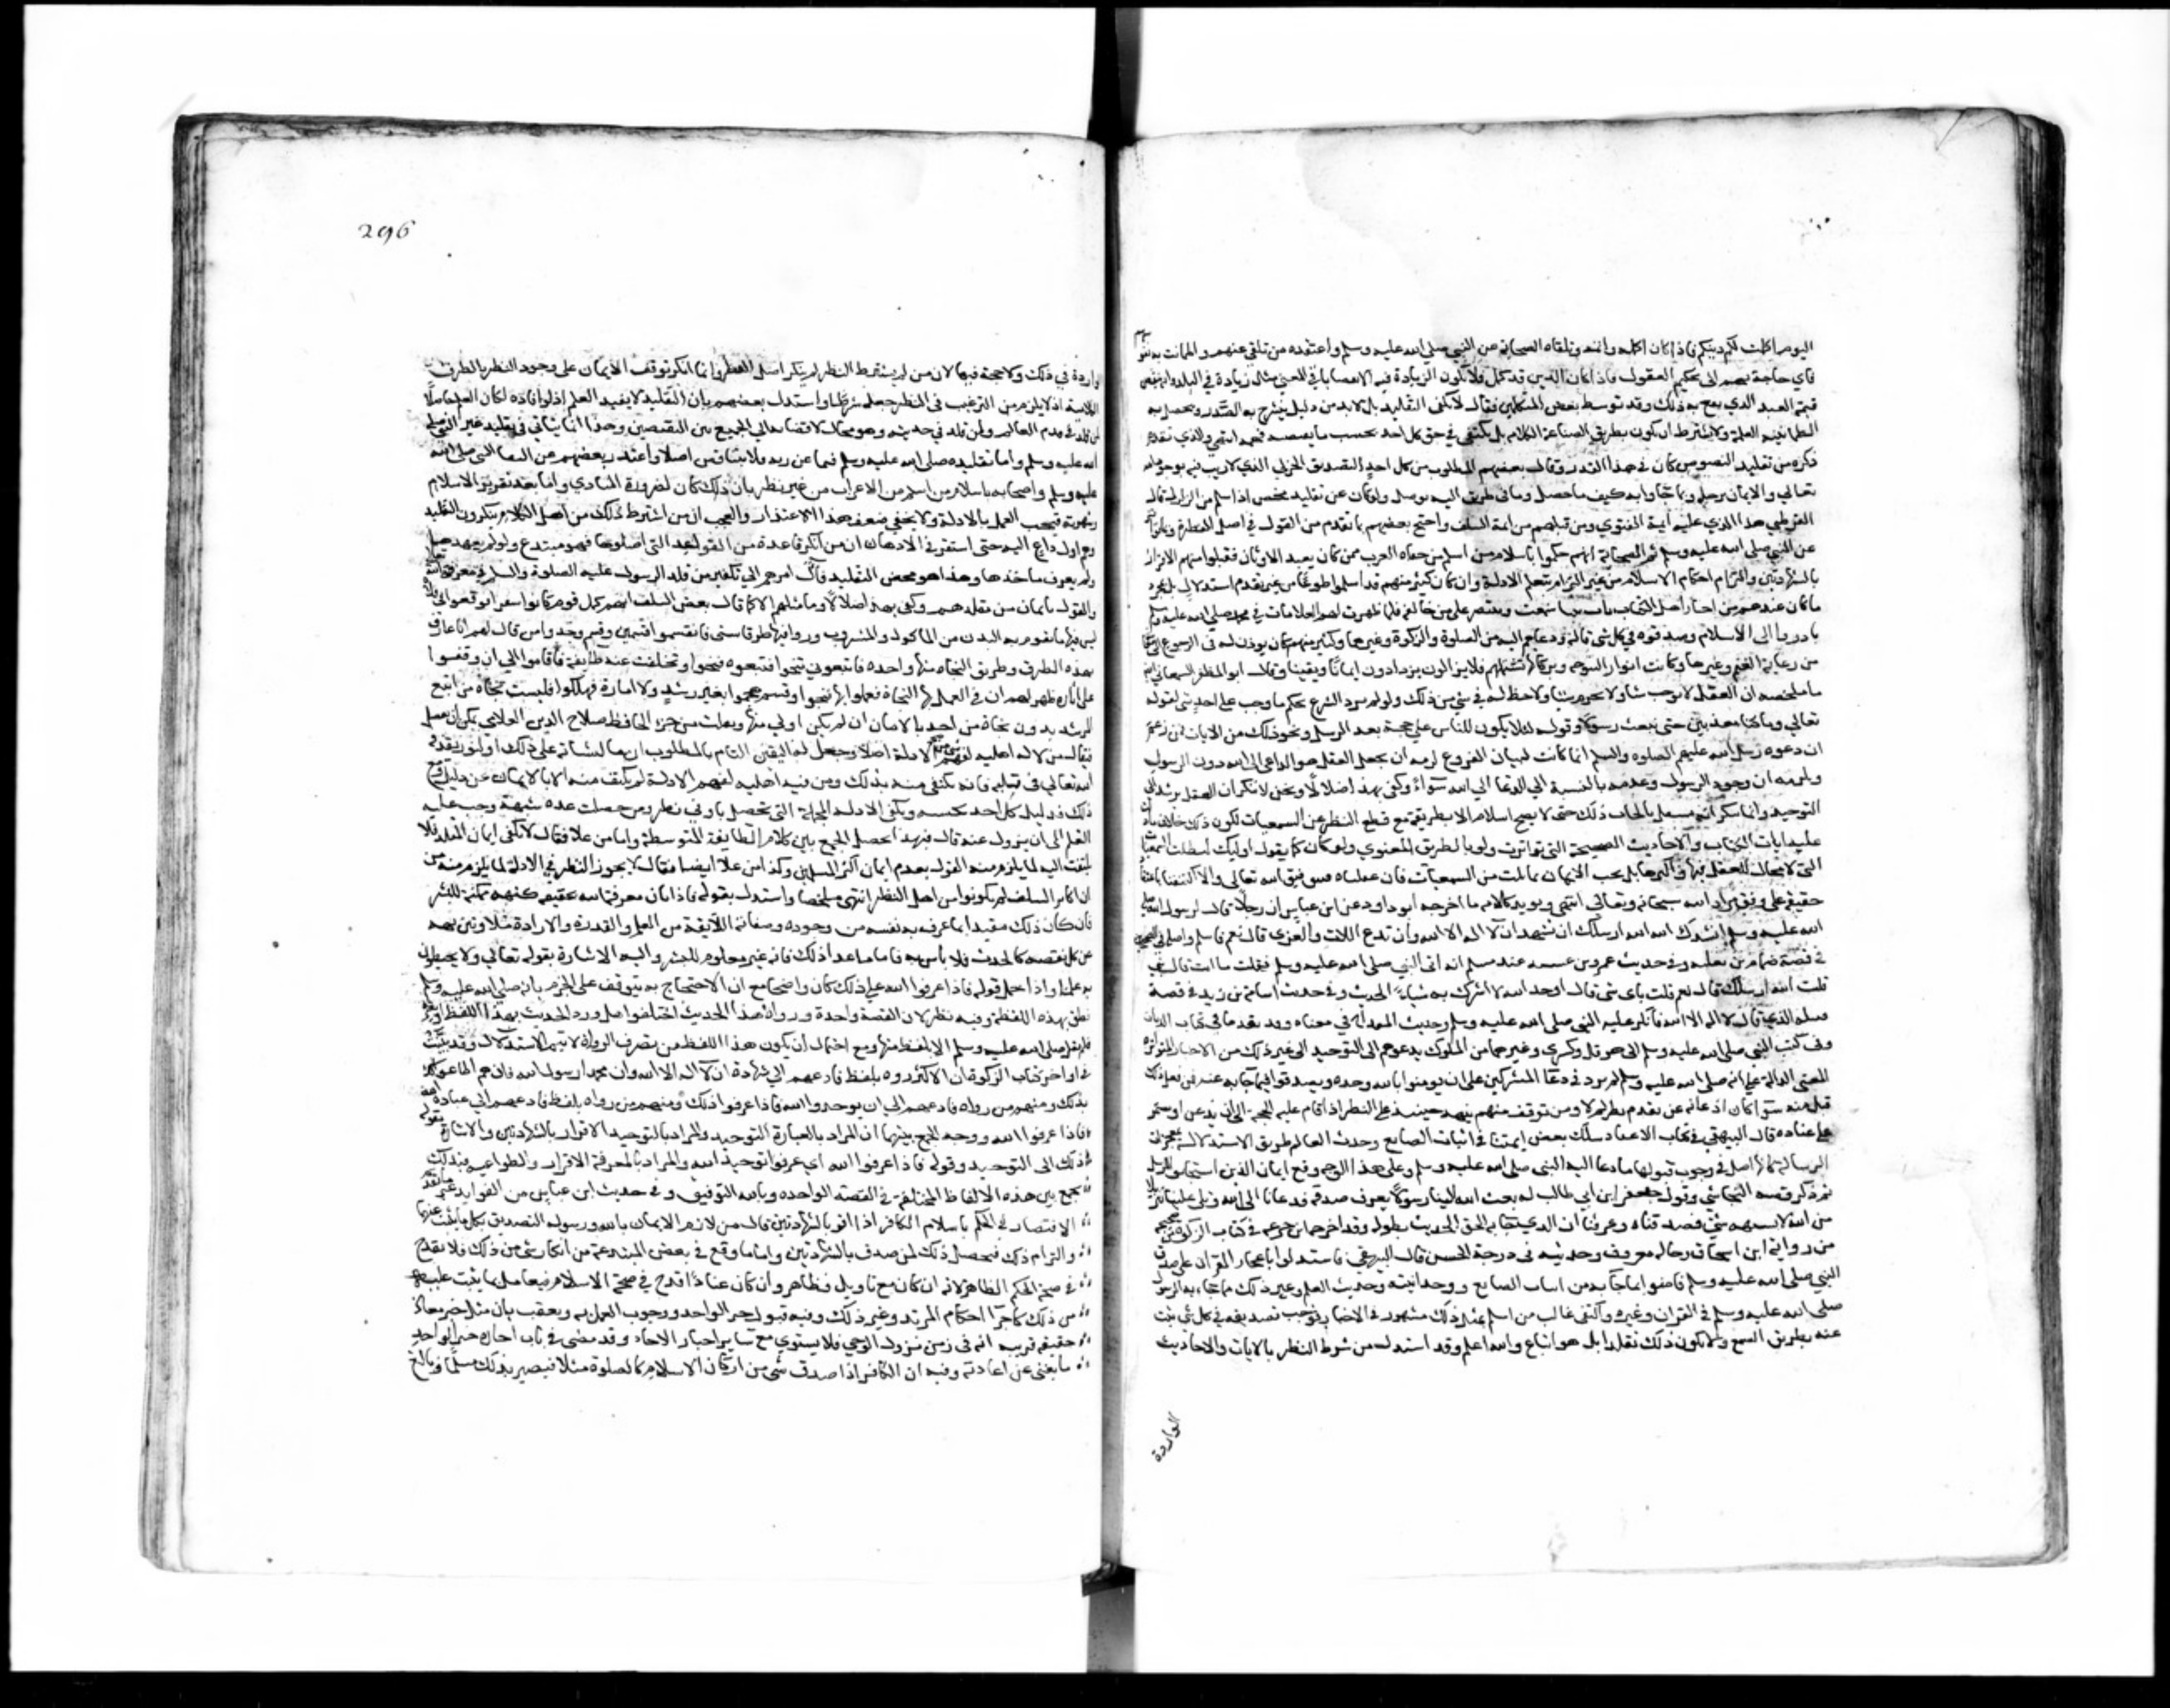 اليوم اكملت لكم دينكم فاذا كان اكمله واتمه وتلقاه الصحابة عن النبي صلى الله عليه وسلم واعتقده من تلقى عنهم واطمانت به نفوسهم
فاي حاجة بهم الى تحكيم العقول
قيمة العبد الذي مع به ذلك وقد توسط بعض المتكلمين فقال لا يكفي التقليد بل لا بد من دليل ينشرح به الصدر وتحصل به
الطمانينة العلمية ولا يشترط ان يكون بطريق الصناعة الكلامية بل يكتفى في حق كل احد بحسب ما يقتضيه فهمه انتهى والذي تقدم
ذكره من تقليد النصوص كاف في هذا القدر وقال بعضهم المطلوب من كل احد التصديق الجزمي الذي لا ريب فيه بوجود الله
تعالى والايمان برسله وبما جاؤا به كيف ما حصل وباي طريق اليه يوصل ولو كان عن تقليد محض اذا سلم من التزلزل قال
القرطبي هذا الذي عليه ايمة الفتوى ومن قبلهم من ايمة السلف واحتج بعضهم بما تقدم من القول في اصل الفطرة وبما تواتر
عن النبي صلى الله عليه وسلم ثم الصحابة انهم حكموا باسلام من اسلم من جفاة العرب ممن كان يعبد الاوثان فقبلوا منهم الاقرار
بالشهادتين والتزام احكام الاسلام من غير الزام بتعلم الادلة وان كان كثير منهم
بادروا الى الاسلام وصدقوه في كل شي قاله ودعاهم اليه من الصلوة والزكوة وغيرهما وكثير منهم كان يوذن له في الرجوع الى معاشه
من رعاية الغنم وغيرها وكانت انوار النبوة وبركاتها تشملهم فلا يزالون يزدادون ايمانا ويقينا وقال ابو المظفر السمعاني ايضا
ما ملخصه ان العقل لا يوجب شيا ولا يحرم شيا ولا حظ له في شي من ذلك ولو لم يرد الشرع بحكم ما وجب على احد شي لقوله
تعالى وما كنا معذبين حتى نبعث رسولا وقوله لئلا يكون للناس على الله حجة بعد الرسل ونحو ذلك من الايات فمن زعم
ان دعوة رسل الله عليهم الصلوة والسلم انما كانت لبيان الفروع لزمه ان يجعل العقل هو الداعي الى الله دون الرسول
ويلزمه ان وجود الرسول وعدمه بالنسبة الى الدعا الى الله سوآء وكفى بهذا ضلالا ونحن لا ننكر ان العقل يرشد الى
التوحيد وانما ننكر انه يستقل بايجاب ذلك حتى لا يصح اسلام الا بطريقه مع قطع النظر عن السمعيات لكون ذلك خلاف ما دلت
عليه ايات الكتاب والاحاديث الصحيحة التي تواترت ولو بالطريق المعنوي ولو كان كما يقول اوليك لبطلت السمعيات
التي لا مجال للعقل فيها او اكثرها بل يجب الايمان بما ثبت من السمعيات فان عقلناه فبتوفيق الله تعالى والا اكتفينا باعتقاد
حقيقته على وفق مراد الله سبحانه وتعالى انتهى ويويد كلامه ما اخرجه ابو داود عن ابن عباس ان رجلا قال لرسول الله صلى
الله عليه وسلم انشدك الله الله ارسلك ان نشهد ان لا اله الا الله وان ندع اللات والعزى قال نعم فاسلم واصله في الصحيحين
في قصة ضمام بن ثعلبة وفي حديث عمرو بن عبسه عند مسلم انه اتى النبي صلى الله عليه وسلم فقلت ما انت قال نبي
قلت آلله ارسلك قال نعم قلت باي شي قال اوحد الله لا اشرك به شيا الحديث وفي حديث اسامة بن زيد في قصة
قتله الذي قال لا اله الا الله فانكر عليه النبي صلى الله عليه وسلم وحديث المقداد في معناه وقد تقدما في كتاب الديات
وفي كتب النبي صلى الله عليه وسلم الى هرقل وكسرى وغيرهما من الملوك يدعوهم الى التوحيد الى غير ذلك من الاخبار المتواترة
المعنى الدالة على انه صلى الله عليه وسلم لم يزد في دعآ المشركين على ان يومنوا بالله وحده ويصدقوا فيما جآ به عنه فمن فعل ذلك
قبل منه سوآ كان اذعانه عن تقدم نظر ام لا ومن توقف منهم نبهه حينئذ على النظر او اقام عليه الحجة الى ان يذعن او يستمر
على عناده وقال البيهقي في كتاب الاعتقاد سلك بعض ايمتنا في اثبات الصانع وحدث العالم طريق الاستدلال بمعجزات
الرسالة فانها اصل في وجوب قبول ما دعا اليه النبي صلى الله عليه وسلم وعلى هذا الوجه وقع ايمان الذين استجابوا للرسل
ثم ذكر قصة النجاشي وقول جعفر ابن ابي طالب له بعث الله الينا رسولا نعرف صدقه فدعانا الى الله وتلى علينا تنزيلا
من الله لا يشبهه شي فصدقناه وعرفنا ان الذي جآ به الحق الحديث بطوله وقد اخرجه ابن خزيمة في كتاب الزكوة من صحيحه
من رواية ابن اسحاق وحاله معروف وحديثه في درجة الحسن قال البيهقي فاستدلوا باعجاز القران على صدق
النبي صلى الله عليه وسلم فامنوا بما جآ به من اثبات الصانع ووحدانيته وحدث العالم وغير ذلك مما جآء به الرسول
صلى الله عليه وسلم في القران وغيره واكتفى غالب من اسلم بمثل ذلك مشهور في الاخبار فوجب تصديقه في كل شي ثبت
عنه بطريق السمع ولا يكون ذلك تقليدا بل هو اتباع والله اعلم وقد استدل من شرط النظر بالايات والاحاديث
الواردة
296
الواردة في ذلك ولا حجة فيها لان من لم يشترط النظر لم ينكر اصل النظر وانما انكر توقف الايمان على وجود النظر بالطرق
الكلامية اذ لا يلزم من الترغيب في النظر جعله شرطا واستدل بعضهم بان التقليد لا يفيد العلم اذ لو افاده لكان العلم حاصلا
لمن قلد في قدم العالم ولمن قلد في حدوثه وهو محال لافضائه الى الجمع بين النقيضين وهذا انما يتاتى في تقليد غير النبي صلى
الله عليه وسلم واما تقليده صلى الله عليه وسلم فيما عن ربه فلا يتناقض اصلا واعتذر بعضهم عن اكتفا النبي صلى الله
عليه وسلم واصحابه باسلام من اسلم من الاعراب من غير نظر بان ذلك كان لضرورة المبادي واما بعد تقرير الاسلام
وشهرته فيجب العمل بالادلة ولا يخفى ضعف هذا الاعتذار والعجب ان من اشترط ذلك من اهل الكلام ينكرون التقليد
وهم اول داع اليه حتى استقر في الاذهان ان من انكر قاعدة من القواعد التي اصلوها فهو مبتدع ولو لم يفهمها
ولم يعرف ماخذها وهذا هو محض التقليد فآل امرهم الى تكفير من قلد الرسول عليه الصلوة والسلم في معرفة الله
والقول بايمان من قلدهم وكفى بهذا ضلالا وما مثلهم الا كما قال بعض السلف انهم كمثل قوم كانوا سفرا فوقعوا في فلاة
ليس فيها ما يقوم به البدن من الماكول والمشروب وراوا فيها طرقا شتى فانقسموا قسمين فقسم وجدوا من قال لهم انا عارف
بهذه الطرق وطريق النجاة منها واحده فاتبعوني تنجوا فتبعوه فنجوا وتخلفت عنه طايفة فاقاموا الى ان وقفوا
على امارة ظهر لهم ان في العمل بها النجاة فعملوا بها فنجوا وقسم هجموا بغير مرشد ولا امارة فهلكوا فليست نجاة من اتبع
المرشد بدون نجاة من اخذ بالامارة ان لم يكن اولى منها ونقلت من جزء الحافظ صلاح الدين العلاي يمكن ان يفصل
فيقال من لا له اهلية لفهم شي من الادلة اصلا وحصل له اليقين التام بالمطلوب اما لنشاته على ذلك او لنور يقذفه
الله تعالى في قلبه فانه يكتفى منه بذلك ومن فيه اهلية لفهم الادلة لم يكتف منه الا بالايمان عن دليل ومع
ذلك فدليل كل احد بحسبه وتكفي الادلة المجملة التي تحصل بادنى نظر ومن حصلت عنده شبهة وجب عليه
التعلم الى ان تزول عنه قال فبهذا يحصل الجمع بين كلام الطايفة المتوسطة واما من غلا فقال لا يكفي ايمان المقلد فلا
يلتفت اليه لما يلزم منه القول بعدم ايمان اكثر المسلمين وكذا من غلا ايضا فقال لا يجوز النظر في الادلة لما يلزم منه من
ان اكابر السلف لم يكونوا من اهل النظر انتهى ملخصا واستدل بقوله فاذا بان معرفة الله بحقيقة كنهه ممكنة للبشر
فان كان ذلك مقيدا بما عرف به نفسه من وجوده وصفاته اللايقة من العلم والقدرة والارادة مثلا وتنزيهه
عن كل نقيصة كالحدوث فلا باس به فاما ما عدا ذلك فانه غير معلوم للبشر واليه الاشارة بقوله تعالى ولا يحيطون
به علما واذا حمل قوله فاذا عرفوا الله على ذلك كان واضحا مع ان الاحتجاج به يتوقف على الجزم بانه صلى الله عليه وسلم
نطق بهذه اللفظة وفيه نظر لان القصة واحدة ورواة هذا الحديث اختلفوا هل ورد الحديث بهذا اللفظ او بغيره
فلم يقل صلى الله عليه وسلم الا بلفظ منها ومع احتمال ان يكون هذا اللفظ من تصرف الرواة لا يتم الاستدلال وقد بينت
في اواخر كتاب الزكوة ان الاكثر رووه بلفظ فادعهم الى شهادة ان لا اله الا الله وان محمدا رسول الله فان هم اطاعوا لك
بذلك ومنهم من رواه فادعهم الى ان يوحدوا الله فاذا عرفوا ذلك ومنهم من رواه بلفظ فادعهم الى عبادة الله
فاذا عرفوا الله ووجه الجمع بينهما ان المراد بالعبادة التوحيد والمراد بالتوحيد الاقرار بالشهادتين والاشارة بقوله
ذلك الى التوحيد وقوله فاذا عرفوا الله اي عرفوا توحيد الله والمراد بالمعرفة الاقرار والطواعية فبذلك
يجمع بين هذه الالفاظ المختلفة في القصة الواحده وبالله التوفيق وفي حديث ابن عباس من الفوايد غير ما تقدم
الاقتصار في الحكم باسلام الكافر اذا اقر بالشهادتين فان من لازم الايمان بالله ورسوله التصديق بكل ما ثبت عنهما
والتزام ذلك فيحصل ذلك لمن صدق بالشهادتين واما ما وقع في بعض المبتدعة من انكار شي من ذلك فلا يقدح
في صحة الحكم الظاهر لانه ان كان مع تاويل فظاهر وان كان عنادا قدح في صحة الاسلام فيعامل بما يثبت عليه
من ذلك كاجرآ احكام المرتد وغير ذلك وفيه قبول خبر الواحد ووجوب العمل به وتعقب بان مثل خبر معاذ
حقيقة قرينة انه في زمن نزول الوحي فلا يستوي مع ساير اخبار الاحاد وقد مضى في باب اجازة خبر الواحد
ما يغني عن اعادته وفيه ان الكافر اذا صدق بشي من اركان الاسلام كالصلوة مثلا فيصير بذلك مسلما وبالغ